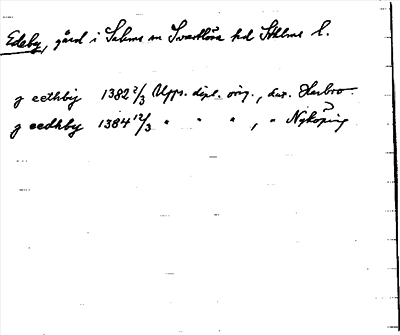 Edeby, gård i Salems sn Svartlösa hd Sthlms l.
j eethby 1382 2/3 Upps. dipl. orig., dat. Harbro.
j eedhby 1384 12/3 " " " , " Nyköping